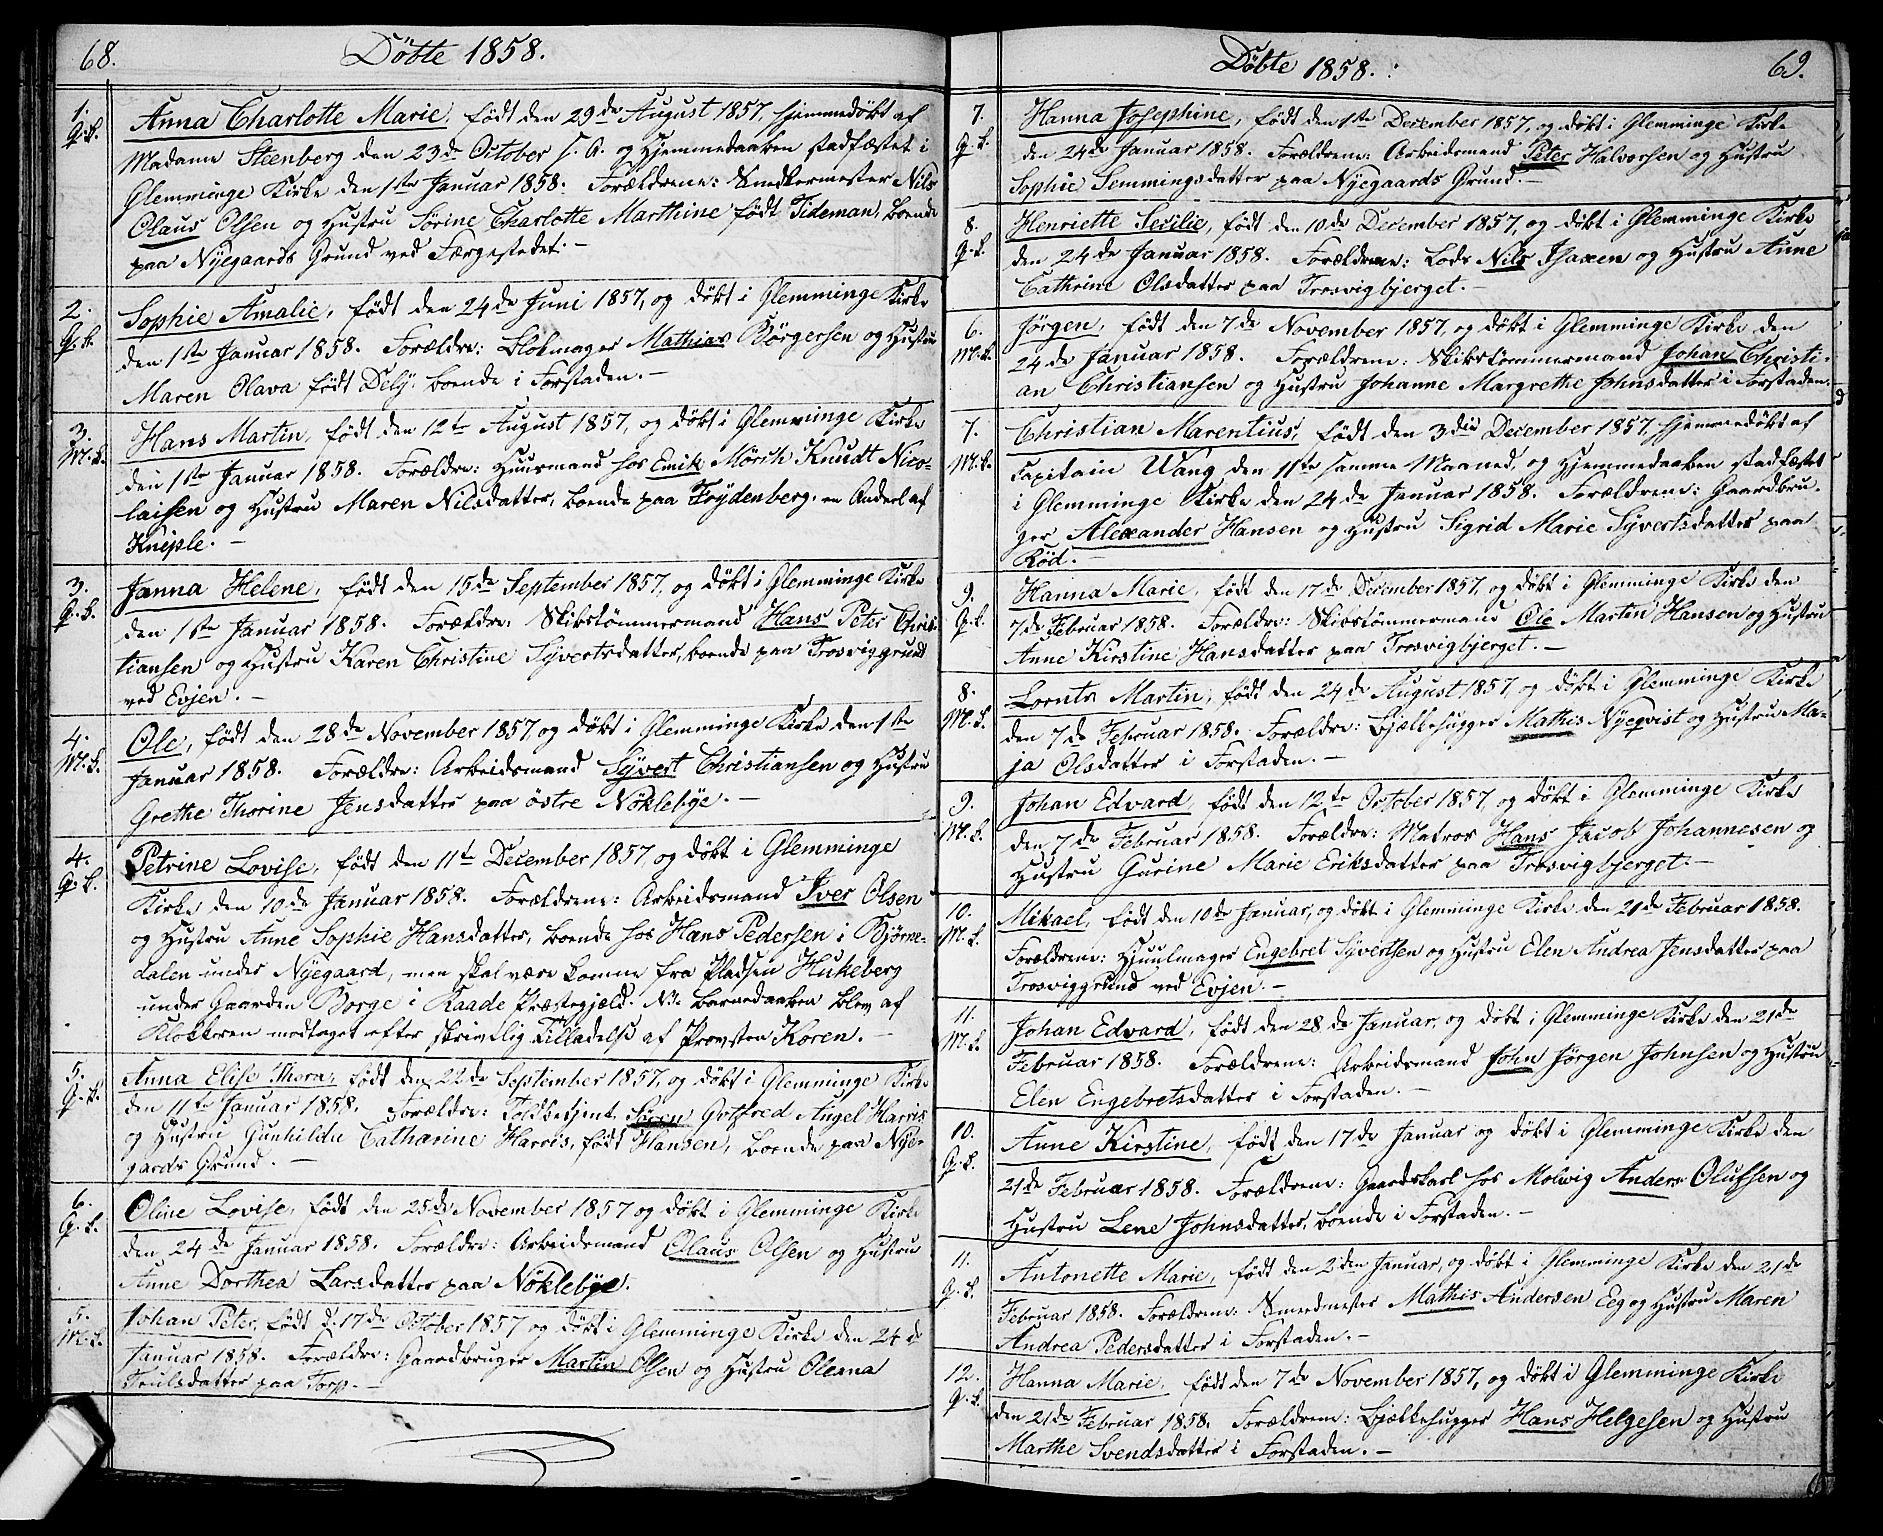 68.
Döbte 1858.
1.
Q. K.
Anna Charlotte Marie, født den 29de August 1857, hjemmedøbt af
Madame Steenberg den 23de October s. A. og Hjemmedaaben stadfæstet i
Glemminge Kirke den 1ste Januar 1858. Forældrene: Snedkermester Nils
Olaus Olsen og Hustru Sørine Charlotte Marthine født Tideman, boende
paa Nyegaards Grund ved Færgestedet. –
2.
Q. K.
Sophie Amalie, født den 24de Juni 1857, og døbt i Glemminge Kirke
den 1ste Januar 1858. Forældre: Blokmager Mathias Börgersen og Hustru
Maren Olava født Dely, boende i Forstaden. –
3.
M. K.
Hans Martin, født den 12te August 1857, og døbt i Glemminge Kirke
den 1ste Januar 1858. Forældre: Huusmand hos Emik Mörch Knudt Nico-
laisen og Hustru Maren Nilsdatter, boende paa Frydenberg, en Andeel af
Kniple. –
3.
Q. K.
Janna Helene, født den 15de September 1857, og døbt i Glemminge Kirke
den 1ste Januar 1858. Forældre: Skibstømmermand Hans Peter Chris-
tiansen og Hustru Karen Christine Syvertsdatter, boende paa Trosviggrund
ved Evjen. –
4.
M. K.
Ole, født den 28de November 1857 og døbt i Glemminge Kirke den 1ste
Januar 1858. Forældre: Arbeidsmand Syvert Christiansen og Hustru
Grethe Thorine Jensdatter paa östre Nöklebye. –
4.
Q. K.
Petrine Lovise, født den 11te December 1857 og døbt i Glemminge
Kirke den 10de Januar 1858. Forældrene: Arbeidsmand Iver Olsen
og Hustru Anne Sophie Hansdatter, boende hos Hans Pedersen i Bjørne-
dalen under Nyegaard, men skal være komne fra Pladsen Hukeberg
under Gaarden Borge i Raade Præstegjæld. NB. Barnedaaben blev af
Klokkeren modtaget efter skrivtlig Tilladelse af Provsten Koren. –
5.
Q. K.
Anna Elise Thora, født den 22de September 1857, og døbt i Glemminge Kirke
den 11te Januar 1858. Forældre: Toldbetjent Sören Gotfred Angel Harris
og Hustru Gunhilda Catharine Harris, født Hansen, boende paa Nye-
gaards Grund. –
6.
Q. K.
Oline Lovise, født den 25de November 1857 og døbt i Glemminge Kirke
den 24de Januar 1858. Forældre: Arbeidsmand Olaus Olsen og Hustru
Anne Dorthea Larsdatter paa Nöklebye.
5.
M. K.
Johan Peter, født d. 17de October 1857 og døbt i Glemminge Kirke den 24de
Januar 1858. Forældre: Gaardbruger Martin Olsen og Hustru Oleana
Truulsdatter paa Torp. –
Döbte 1858.
69.
7.
Q. K.
Hanna Josephine, født den 1ste December 1857, og døbt i Glemminge Kirke
den 24de Januar 1858. Forældrene: Arbeidsmand Peter Halvorsen og Hustru
Sophie Semmingsdatter paa Nyegaards Grund. –
8.
Q. K.
Henriette Secilie, født den 10de December 1857, og døbt i Glemminge Kirke
den 24de Januar 1858. Forældrene: Lods Nils Isaxen og Hustru Anne
Cathrine Olsdatter paa Trosvigbjerget. –
6.
M. K.
Jörgen, født den 7de November 1857, og døbt i Glemminge Kirke den
24de Januar 1858. Forældrene: Skibstømmermand Johan Christi-
an Christiansen og Hustru Johanne Margrethe Johnsdatter i Forstaden.
7.
M. K.
Christian Marentius, født den 3die December 1857, hjemmedøbt af
Capitain Wang den 11te samme Maaned, og Hjemmedaaben stadfæstet
i Glemminge Kirke den 24de Januar 1858. Forældrene: Gaardbru-
ger Alexander Hansen og Hustru Sigrid Marie Syvertsdatter paa
Röd. –
9.
Q. K.
Hanna Marie, født den 17de December 1857, og døbt i Glemminge Kirke den
7de Februar 1858. Forældre: Skibstømmermand Ole Martin Hansen og Hustru
Anne Kirstine Hansdatter paa Trosvigbjerget. –
8.
M. K.
Lornts Martin, født den 24de August 1857, og døbt i Glemminge Kirke
den 7de Februar 1858. Forældre: Bjælkehugger Mathis Nyeqvist og Hustru Ma-
ja Olsdatter i Forstaden. –
9.
M. K.
Johan Edvard, født den 12te October 1857, og døbt i Glemminge Kirke
den 7de Februar 1858. Forældre: Matros Hans Jacob Johannesen og
Hustru Gurine Marie Eriksdatter paa Trosvigbjerget. –
10.
M. K.
Mikael, født den 10de Januar, og døbt i Glemminge Kirke den 21de Februar 1858.
Forældrene: Hjuulmager Engebret Syvertsen og Hustru Elen Andrea Jensdatter paa
Trosviggrund ved Evjen. –
11.
M. K.
Johan Edvard, født den 28de Januar, og døbt i Glemminge Kirke den 21de
Februar 1858. Forældrene: Arbeidsmand John Jörgen Johnsen og Hustru
Elen Engebretsdatter i Forstaden. –
10.
Q. K.
Anne Kirstine, født den 17de Januar og døbt i Glemminge Kirke den
21de Februar 1858. Forældrene: Gaardskarl hos Molvig Anders Olufsen og
Hustru Lene Johnsdatter, boende i Forstaden. –
11.
Q. K.
Antonette Marie, født den 2den Januar, og døbt i Glemminge Kirke den 21de
Februar 1858. Forældrene: Smedmester Mathis Andersen Eeg og Hustru Maren
Andrea Pedersdatter i Forstaden. –
12.
Q. K.
Hanna Marie, født den 7de November 1857, og døbt i Glemminge Kirke
den 21de Februar 1858. Forældrene: Bjelkehugger Hans Helgesen og Hustru
Marthe Svendsdatter i Forstaden. –